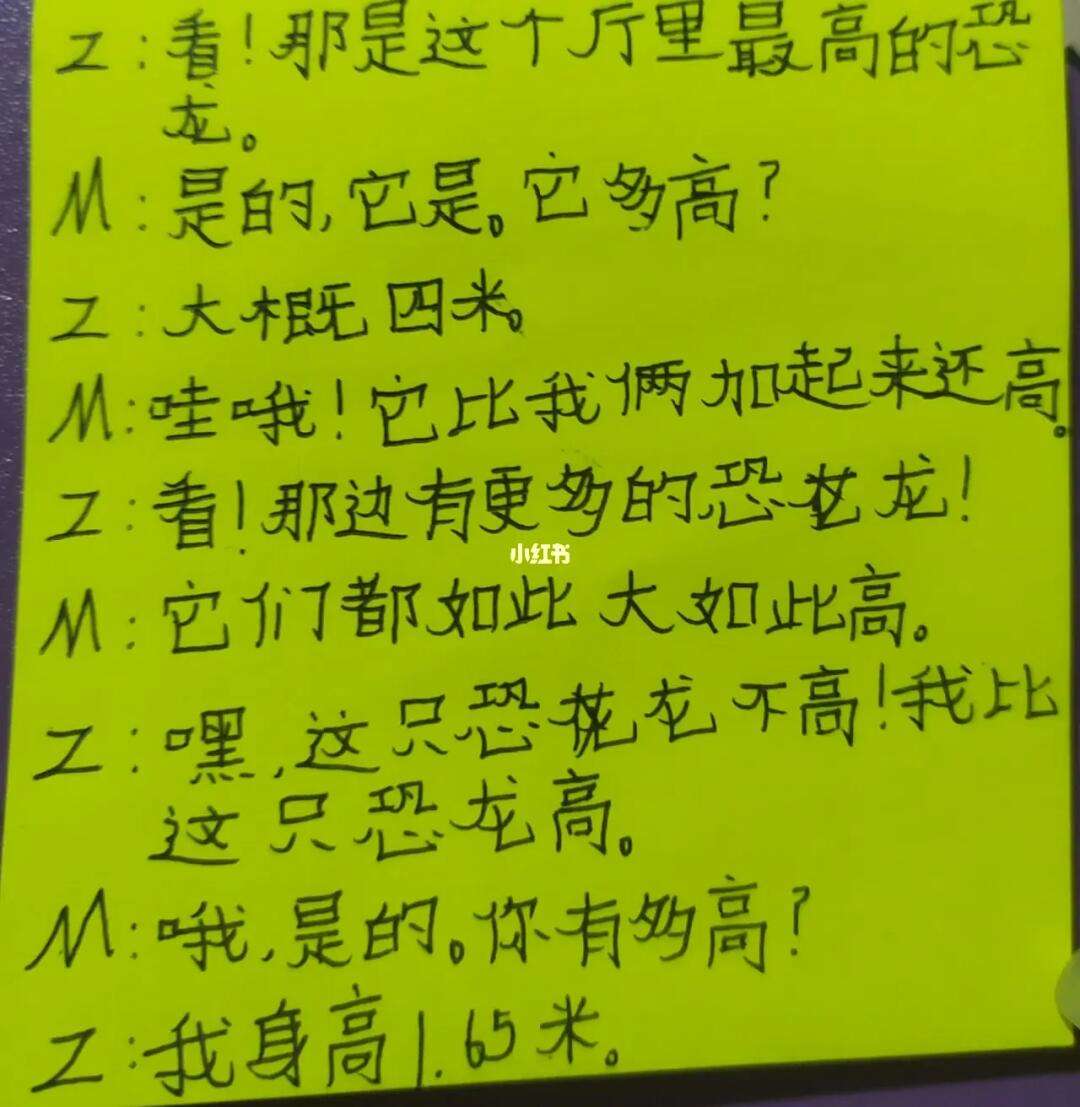 Z:看!那是这个厅里最高的恐
龙。
M:是的,它是。它多高?
Z:大概四米。
M:哇哦!它比我俩加起来还高。
Z:看!那边有更多的恐龙!
小红书
M:它们都如此大如此高。
Z:嘿,这只恐龙不高!我比
这只恐龙高。
M:哦,是的。你有多高?
Z:我身高1.65米。